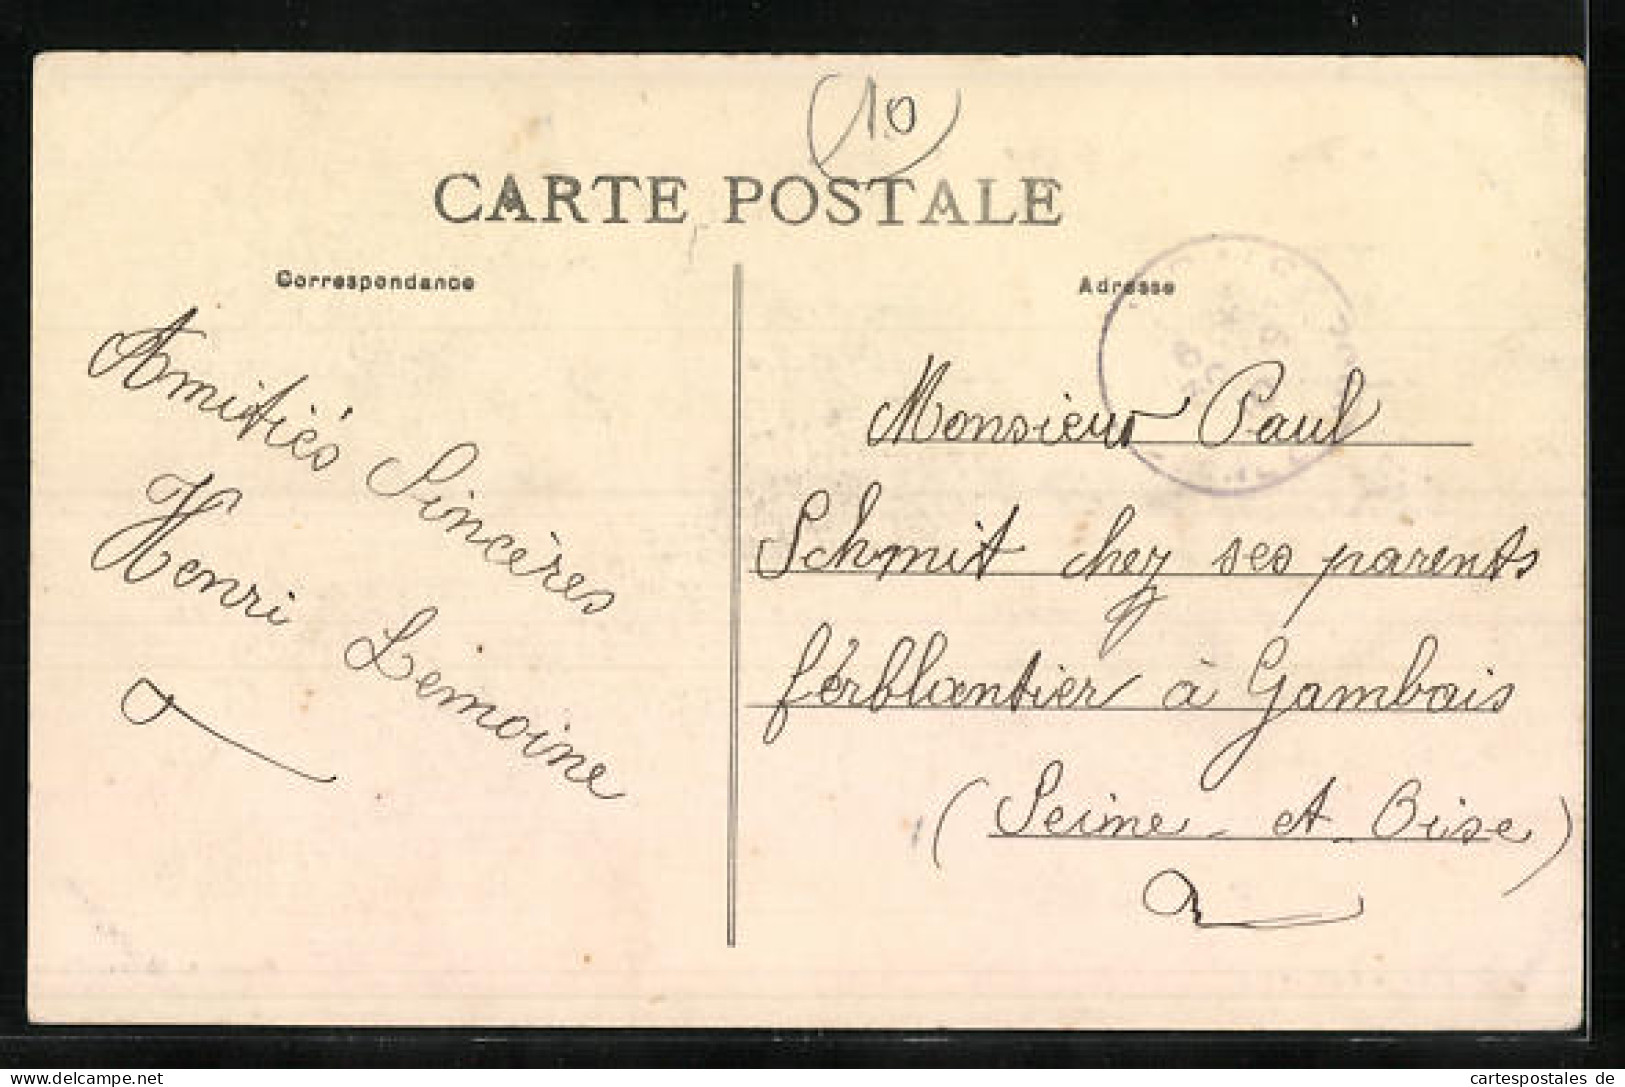 (10)
CARTE POSTALE
Correspondance
Adresse
Amitiés Sincères
Henri Lemoine
Monsieur Paul
Schmit chez ses parents
férblantier à Gambais
(Seine-et-Oise)
delcampe.net
cartespostales de